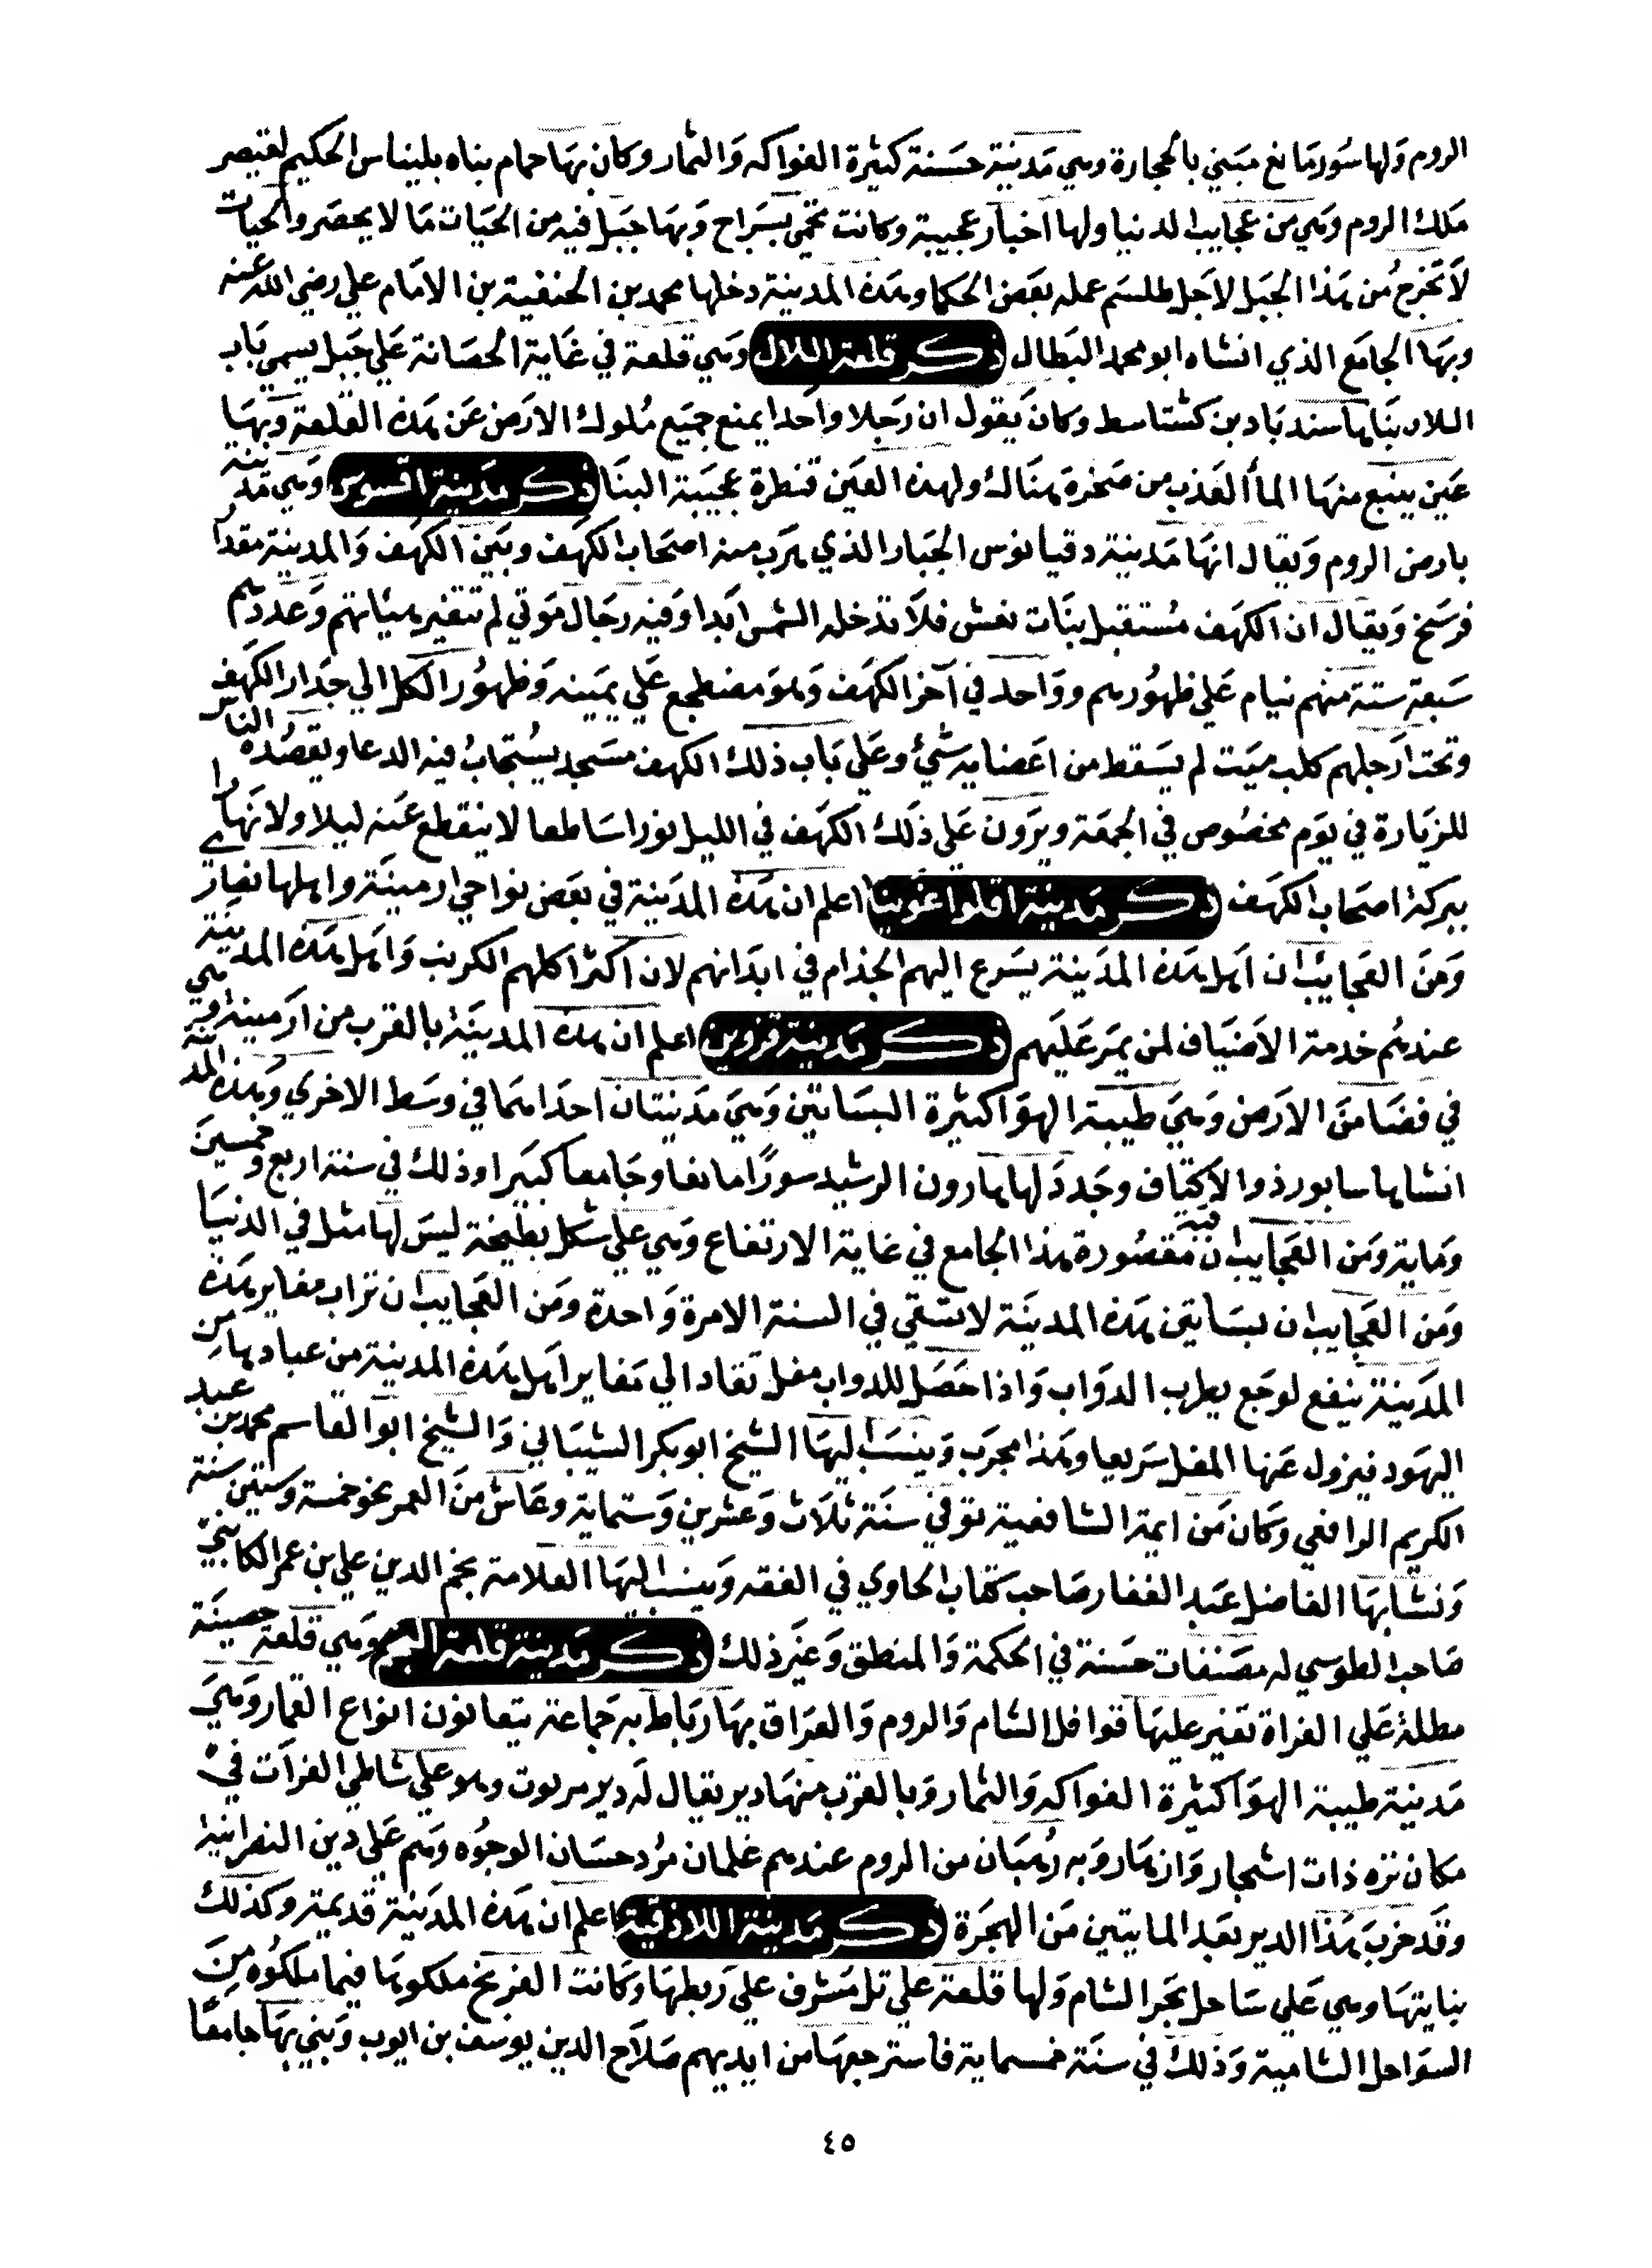 الروم ولها سور مانع مبني بالحجارة وهي مدينة حسنة كثيرة الفواكه والثمار وكان بها حمام بناه بليناس الحكيم لقيصر
ملك الروم وهي من عجايب الدنيا ولها اخبار عجيبة وكانت تحمي بسراج وبها جبل فيه من الحيات ما لا يحصر والحيات
لا تخرج من هذا الجبل لاجل طلسم عمله بعض الحكما وهذه المدينة دخلها محمد بن الحنفية بن الامام علي رضي الله عنه
وبها الجامع الذي انشاه ابو محمد البطال ذكر قلعة اللان وهي قلعة في غاية الحصانة علي جبل يسمي باب
اللان بناها سندباد بن كشتاسط وكان يقول ان رجلا واحدا يمنع جميع ملوك الارض عن هذه القلعة وبها
عين ينبع منها الما العذب من صخرة هناك ولهذه العين قنطرة عجيبة البنا ذكر مدينة افسوس وهي مدينة
بارض الروم ويقال انها مدينة دقيانوس الجبار الذي هرب منه اصحاب الكهف وبين الكهف والمدينة مقدار
فرسخ ويقال ان الكهف مستقبل بنات نعش فلا تدخله الشمس ابدا وفيه رجال موتي لم تتغير هيئاتهم وعددهم
سبعة ستة منهم نيام علي ظهورهم وواحد في آخر الكهف وهو مضطجع علي يمينه وظهور الكل الي جدار الكهف
وتحت ارجلهم كلب ميت لم يسقط من اعضايه شئ وعلي باب ذلك الكهف مسجد يستجاب فيه الدعا ويقصده الناس
للزيارة في يوم مخصوص في الجمعة ويرون علي ذلك الكهف في الليل نورا ساطعا لا ينقطع عنه ليلا ولا نهارا
ببركة اصحاب الكهف ذكر مدينة اعلم ان هذه المدينة في بعض نواحي ارمينة واهلها نصاري
ومن العجايب ان اهل هذه المدينة يسرع اليهم الجذام في ابدانهم لان اكثر اكلهم الكرنب واهل هذه المدينة
عندهم خدمة الاضياف لمن يمر عليهم ذكر مدينة قزوين اعلم ان هذه المدينة بالقرب من ارمينة وهي
في فضا من الارض وهي طيبة الهوا كثيرة البساتين وهي مدينتان احداهما في وسط الاخري وهذه المدينة
انشاها سابور ذوا الاكتاف وجدد لها هارون الرشيد سورا مانعا وجامعا كبيرا وذلك في سنة اربع وخمسين
وماية ومن العجايب ان قبة مقصورة هذا الجامع في غاية الارتفاع وهي علي شكل بطيخة ليس لها مثل في الدنيا
ومن العجايب ان بساتين هذه المدينة لا تسقي في السنة الا مرة واحدة ومن العجايب ان تراب مقابر هذه
المدينة ينفع لوجع يطرب الدواب واذا حصل للدواب مغل تقاد الي مقابر اهل هذه المدينة من عبادها من
اليهود فيزول عنها المغل سريعا وهذا مجرب وينسب اليها الشيخ ابو بكر الشيباني والشيخ ابو القاسم محمد بن عبد
الكريم الرافعي وكان من ايمة الشافعية توفي سنة ثلاث وعشرين وستماية وعاش من العمر نحو خمسة وستين سنة
ونشا بها الفاضل عبد الغفار صاحب كتاب الحاوي في الفقه وينسب اليها العلامة نجم الدين علي بن عمر الكاتبي
صاحب الطوسي له مصنفات حسنة في الحكمة والمنطق وغير ذلك ذكر مدينة قلعة وهي قلعة حصينة
مطلة علي الفراة تغير عليها قوافل الشام والروم والعراق بها رباط به جماعة يتعانون انواع القمار وهي
مدينة طيبة الهوا كثيرة الفواكه والثمار وبالقرب منها دير يقال له دير مرتوت وهو علي شاطي الفرات في
مكان نزه ذات اشجار وازهار وبه رهبان من الروم عندهم غلمان مرد حسان الوجوه وهم علي دين النصرانية
وقد خرب هذا الدير بعد المايتين من الهجرة ذكر مدينة اللاذقية اعلم ان هذه المدينة قديمة وكذلك
بنايتها وهي علي ساحل بحر الشام ولها قلعة علي تل مشرف علي ربطها وكانت الفرنج ملكوها فيما ملكوه من
السواحل الشامية وذلك في سنة خمسماية فاسترجعها من ايديهم صلاح الدين يوسف بن ايوب وبني بها جامعا
٤٥